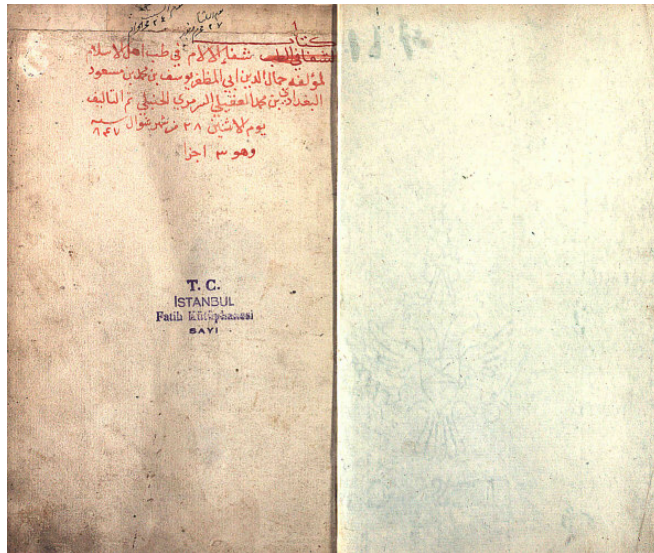 كتاب
شفاء الالام في طب اهل الاسلام
لمؤلفه جمال الدين ابي المظفر يوسف بن محمد بن مسعود
البغدادي بن محمد العقيلي السرمري الحنبلي تم التاليف
يوم الاثنين ٢٨ من شهر شوال سنة
وهو ٣ اجزا
T. C.
İSTANBUL
Fatih Kütüphanesi
SAYI